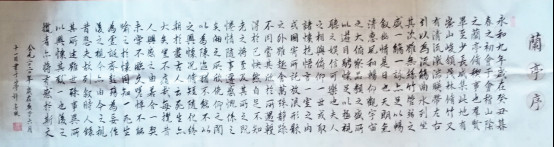 蘭亭序
永和九年歲在癸丑暮
春之初會于會稽山陰
之蘭亭脩稧事也群賢
畢至少長咸集此地有
崇山峻領茂林脩竹又
有清流激湍映帶左右
引以為流觴曲水列坐
其次雖無絲竹管弦之
盛一觴一詠亦足以暢
敘幽情是日也天朗氣
清惠風和暢仰觀宇宙
之大俯察品類之盛所
以遊目騁懷足以極視
聽之娛信可樂也夫人
之相與俯仰一世或取
諸懷抱悟言一室之內
或因寄所託放浪形骸
之外雖趣舍萬殊靜躁
不同當其欣於所遇暫
得於己快然自足不知
老之將至及其所之既
惓情隨事遷感慨係之
矣向之所欣俛仰之間
以為陳迹猶不能不以
之興懷況脩短隨化終
期於盡古人云死生亦
大矣豈不痛哉每攬昔
人興感之由若合一契
未嘗不臨文嗟悼不能
喻之於懷固知一死生
為虛誕齊彭殤為妄作
後之視今亦由今之視
昔悲夫故列敘時人錄
其所述雖世殊事異所
以興懷其致一也後之
攬者亦將有感於斯文